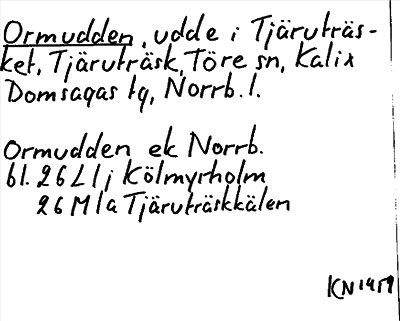 Ormudden, udde i Tjäruträs-
ket, Tjäruträsk, Töre sn, Kalix
Domsagas tg, Norrb. l.
Ormudden ek Norrb.
bl. 26 L 1 j Kölmyrholm
26 M 1 a Tjäruträskkälen
KN 1959